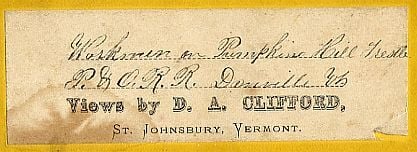 Workmen on Pumpkin Hill Trestle
P. & O. R. R. Danville Vt
Views by D. A. CLIFFORD,
ST. JOHNSBURY, VERMONT.